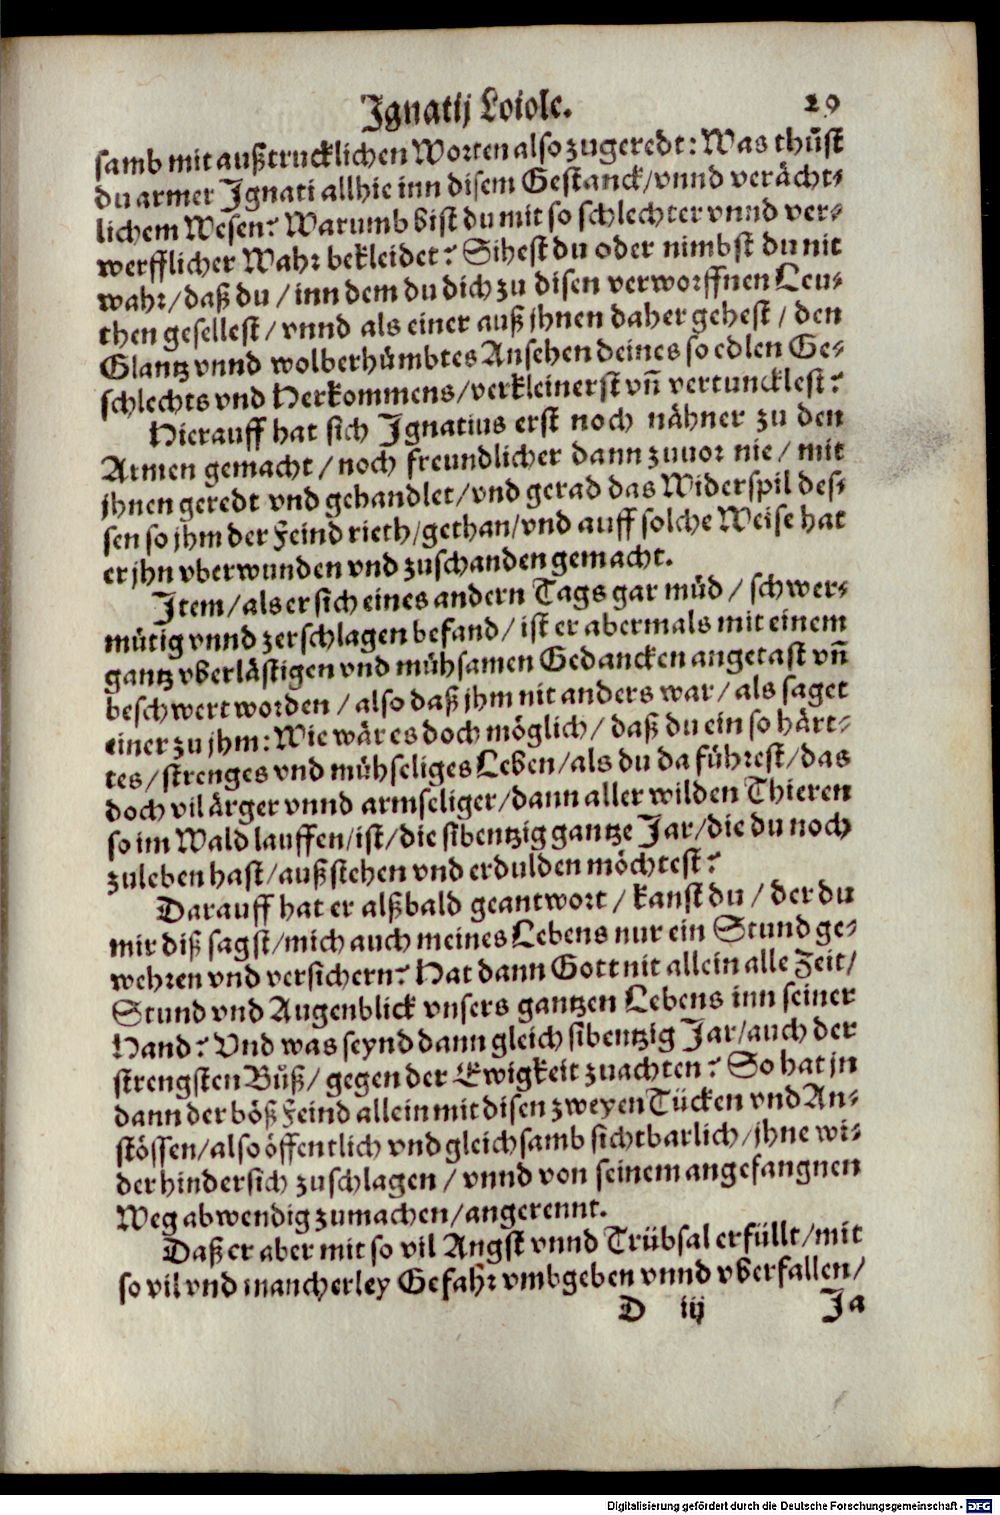 Ignatij Loiole. 29
samb mit außtrucklichen Worten also zugeredt: Was thůst
du armer Ignati allhie inn disem Gestanck/vnnd verächt-
lichem Wesen? Warumb bist du mit so schlechter vnnd ver-
werfflicher Wahr bekleidet? Sihest du oder nimbst du nit
wahr/daß du/inn dem du dich zu disen verworffnen Leu-
then gesellest/vnnd als einer auß jhnen daher gehest/den
Glantz vnnd wolberhümbtes Ansehen deines so edlen Ge-
schlechts vnd Herkommens/verkleinerst vñ vertuncklest?
Hierauff hat sich Ignatius erst noch nähner zu den
Armen gemacht/noch freundlicher dann zuuor nie/mit
jhnen geredt vnd gehandlet/vnd gerad das Widerspil des-
sen so jhm der Feind rieth/gethan/vnd auff solche Weise hat
er jhn vberwunden vnd zuschanden gemacht.
Item/als er sich eines andern Tags gar müd/schwer-
mütig vnnd zerschlagen befand/ist er abermals mit einem
gantz vberlästigen vnd mühsamen Gedancken angetast vñ
beschwert worden/also daß jhm nit anders war/als saget
einer zu jhm: Wie wär es doch möglich/daß du ein so härt-
tes/strenges vnd mühseliges Leben/als du da führest/das
doch vil ärger vnnd armseliger/dann aller wilden Thieren
so im Wald lauffen/ist/die sibentzig gantze Jar/die du noch
zuleben hast/außstehen vnd erdulden möchtest?
Darauff hat er alßbald geantwort/kanst du/der du
mir diß sagst/mich auch meines Lebens nur ein Stund ge-
wehren vnd versichern? Hat dann Gott nit allein alle Zeit/
Stund vnd Augenblick vnsers gantzen Lebens inn seiner
Hand? Vnd was seynd dann gleich sibentzig Jar/auch der
strengsten Büß/gegen der Ewigkeit zuachten? So hat jn
dann der böß Feind allein mit disen zweyen Tücken vnd An-
stössen/also öffentlich vnd gleichsamb sichtbarlich/jhne wi-
der hindersich zuschlagen/vnnd von seinem angefangnen
Weg abwendig zumachen/angerennt.
Daß er aber mit so vil Angst vnnd Trübsal erfüllt/mit
so vil vnd mancherley Gefahr vmbgeben vnnd vberfallen/
D iij Ja
Digitalisierung gefördert durch die Deutsche Forschungsgemeinschaft - DFG